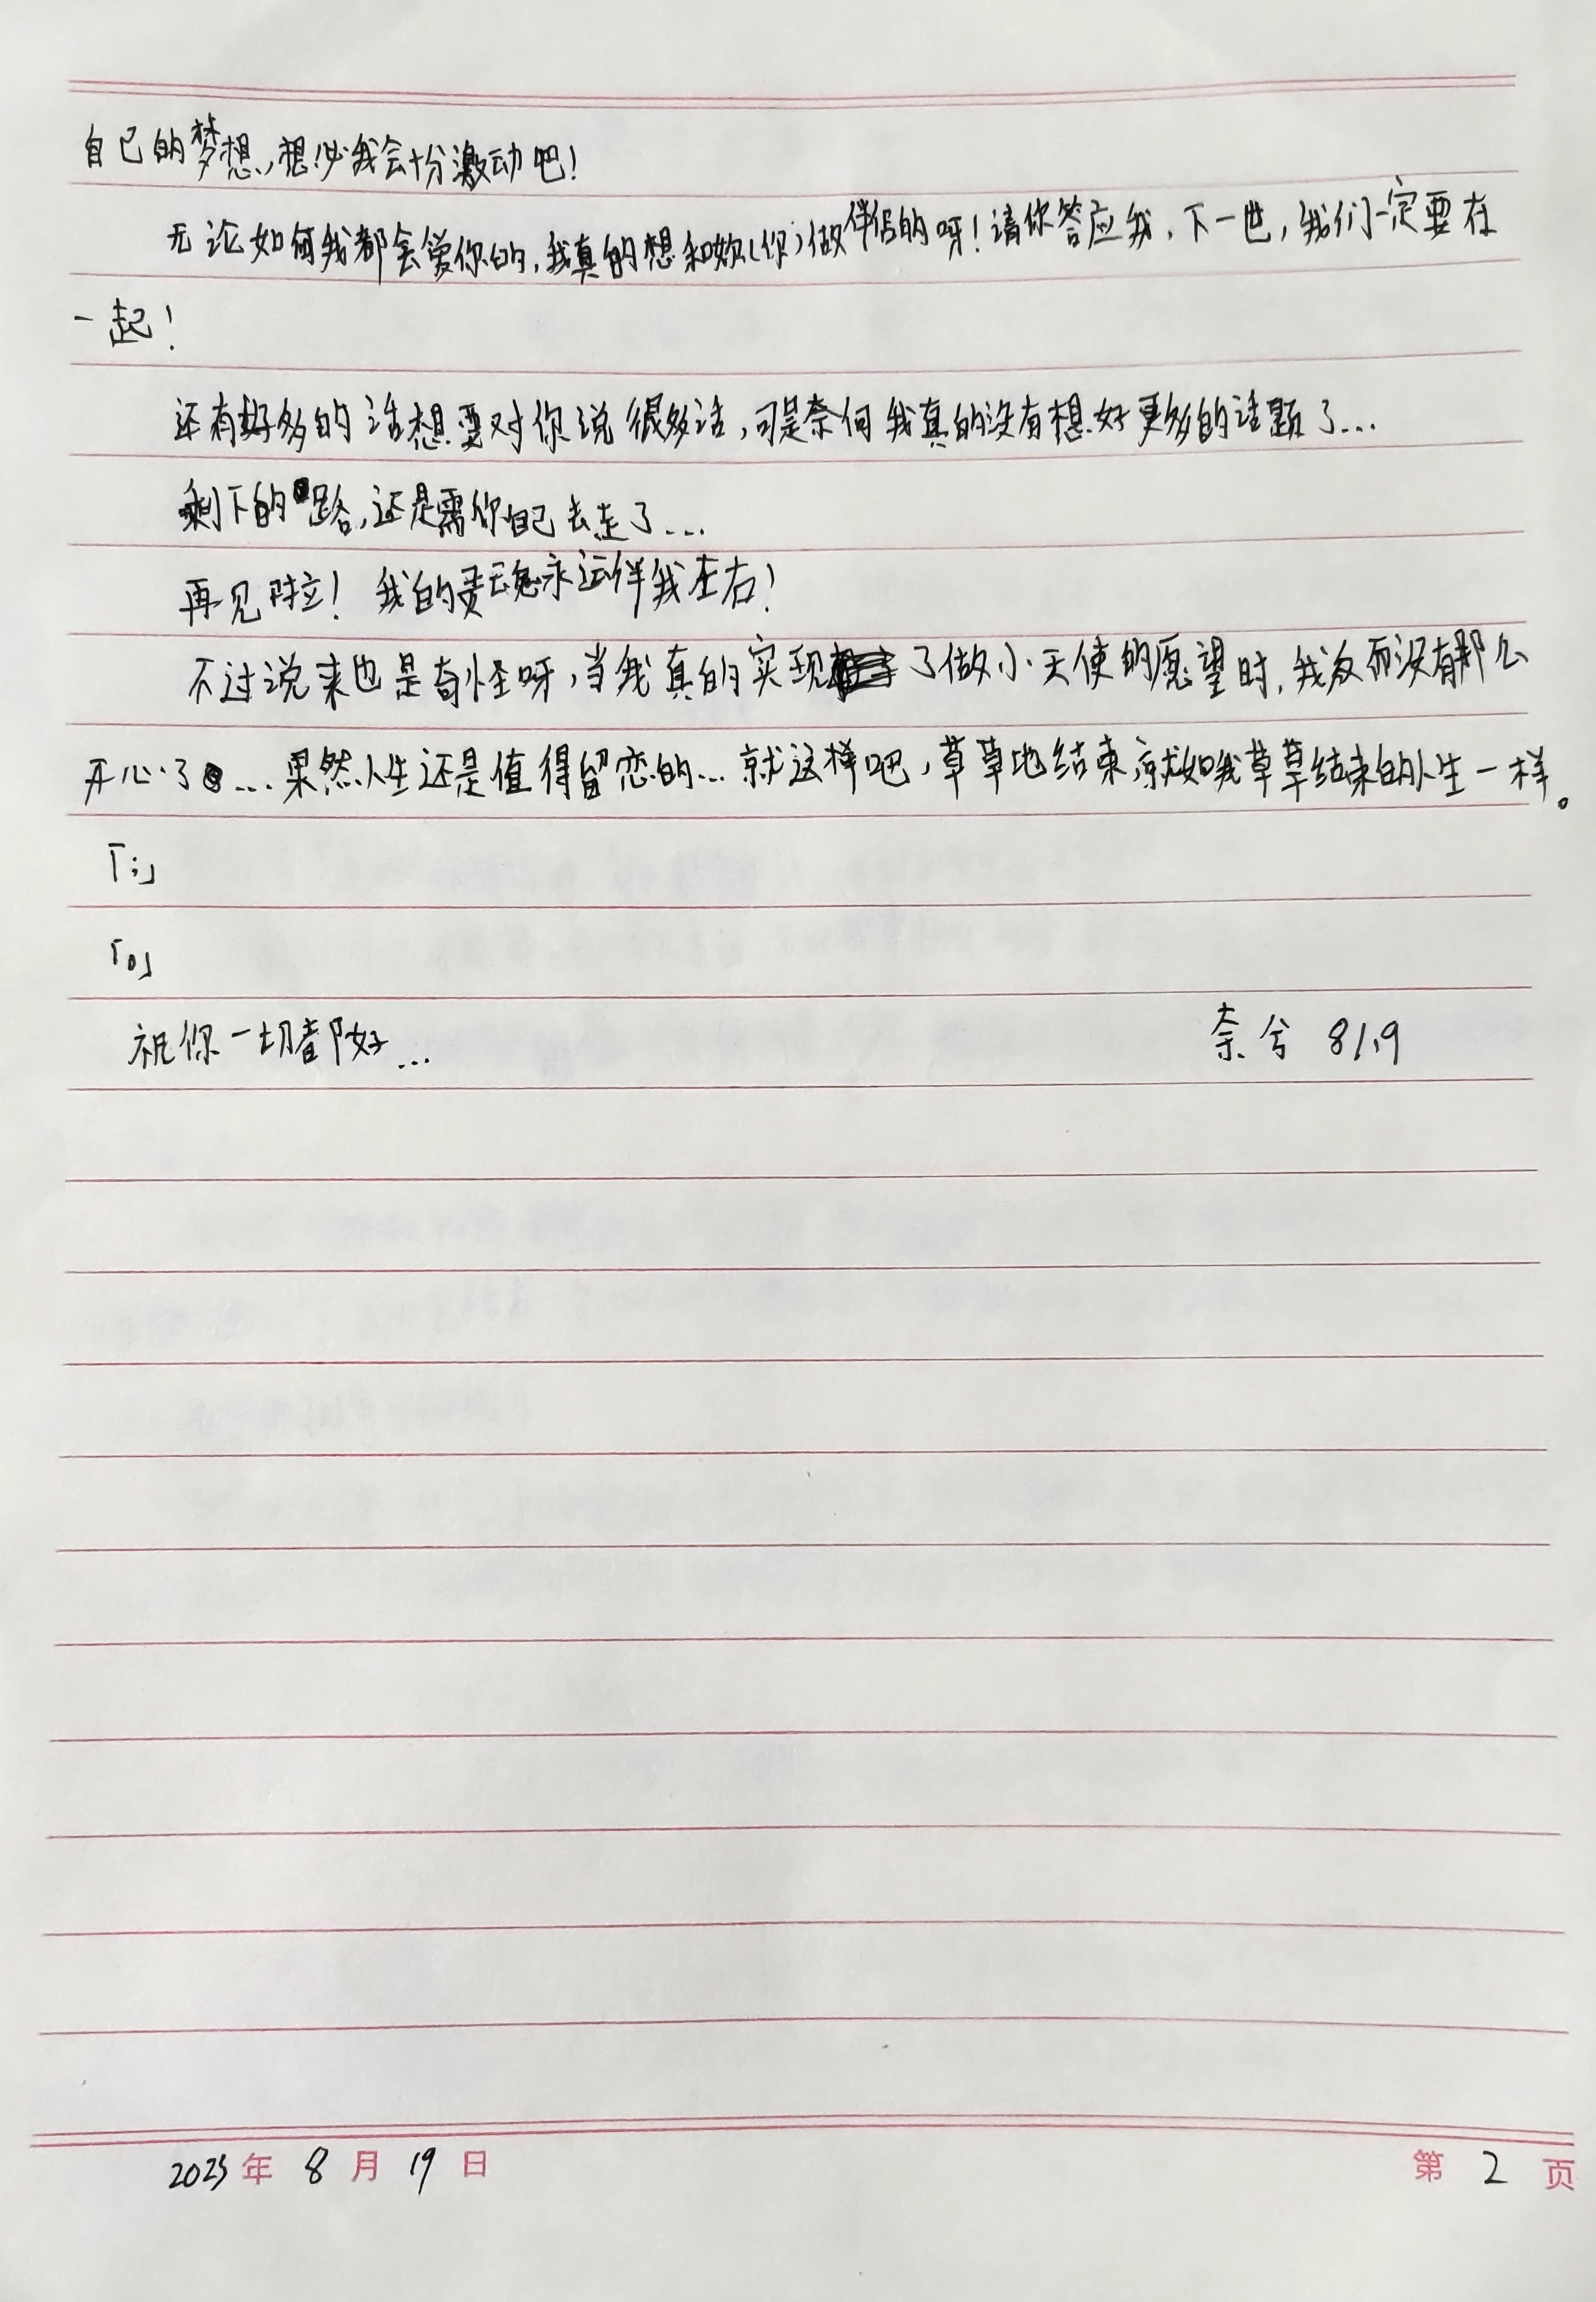 自己的梦想，想必我会十分激动吧！
无论如何我都会爱你的，我真的想和妳（你）做伴侣的呀！请你答应我，下一世，我们一定要在
一起！
还有好多的话想要对你说很多话，可是奈何我真的没有想好更多的话题了...
剩下的路，还是需你自己去走了...
再见啦！我的灵魂永远伴我左右！
不过说来也是奇怪呀，当我真的实现了做小天使的愿望时，我反而没有那么
开心了...果然人生还是值得留恋的...就这样吧，草草地结束，就如我草草结束的人生一样。
「；」
「。」
祝你一切都好... 奈兮 8/19
2023年 8月 19日 第 2 页